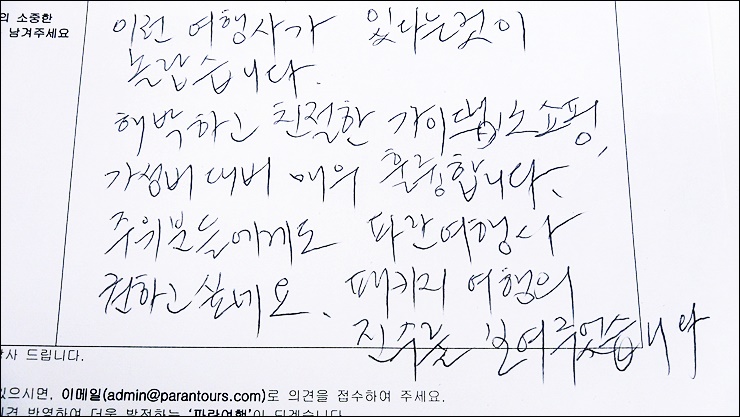 의 소중한
남겨주세요
이런 여행사가 있다는것이
놀랍습니다.
해박하고 친절한 가이드, 노쇼핑,
가성비 대비 매우 훌륭합니다.
주위분들에게도 파란여행사
권하고 싶네요. 패키지 여행의
진수를 보여주었습니다
사 드립니다.
있으시면, 이메일(admin@parantours.com)로 의견을 접수하여 주세요.
견 반영하여 더욱 발전하는 '파란여행'이 되겠습니다